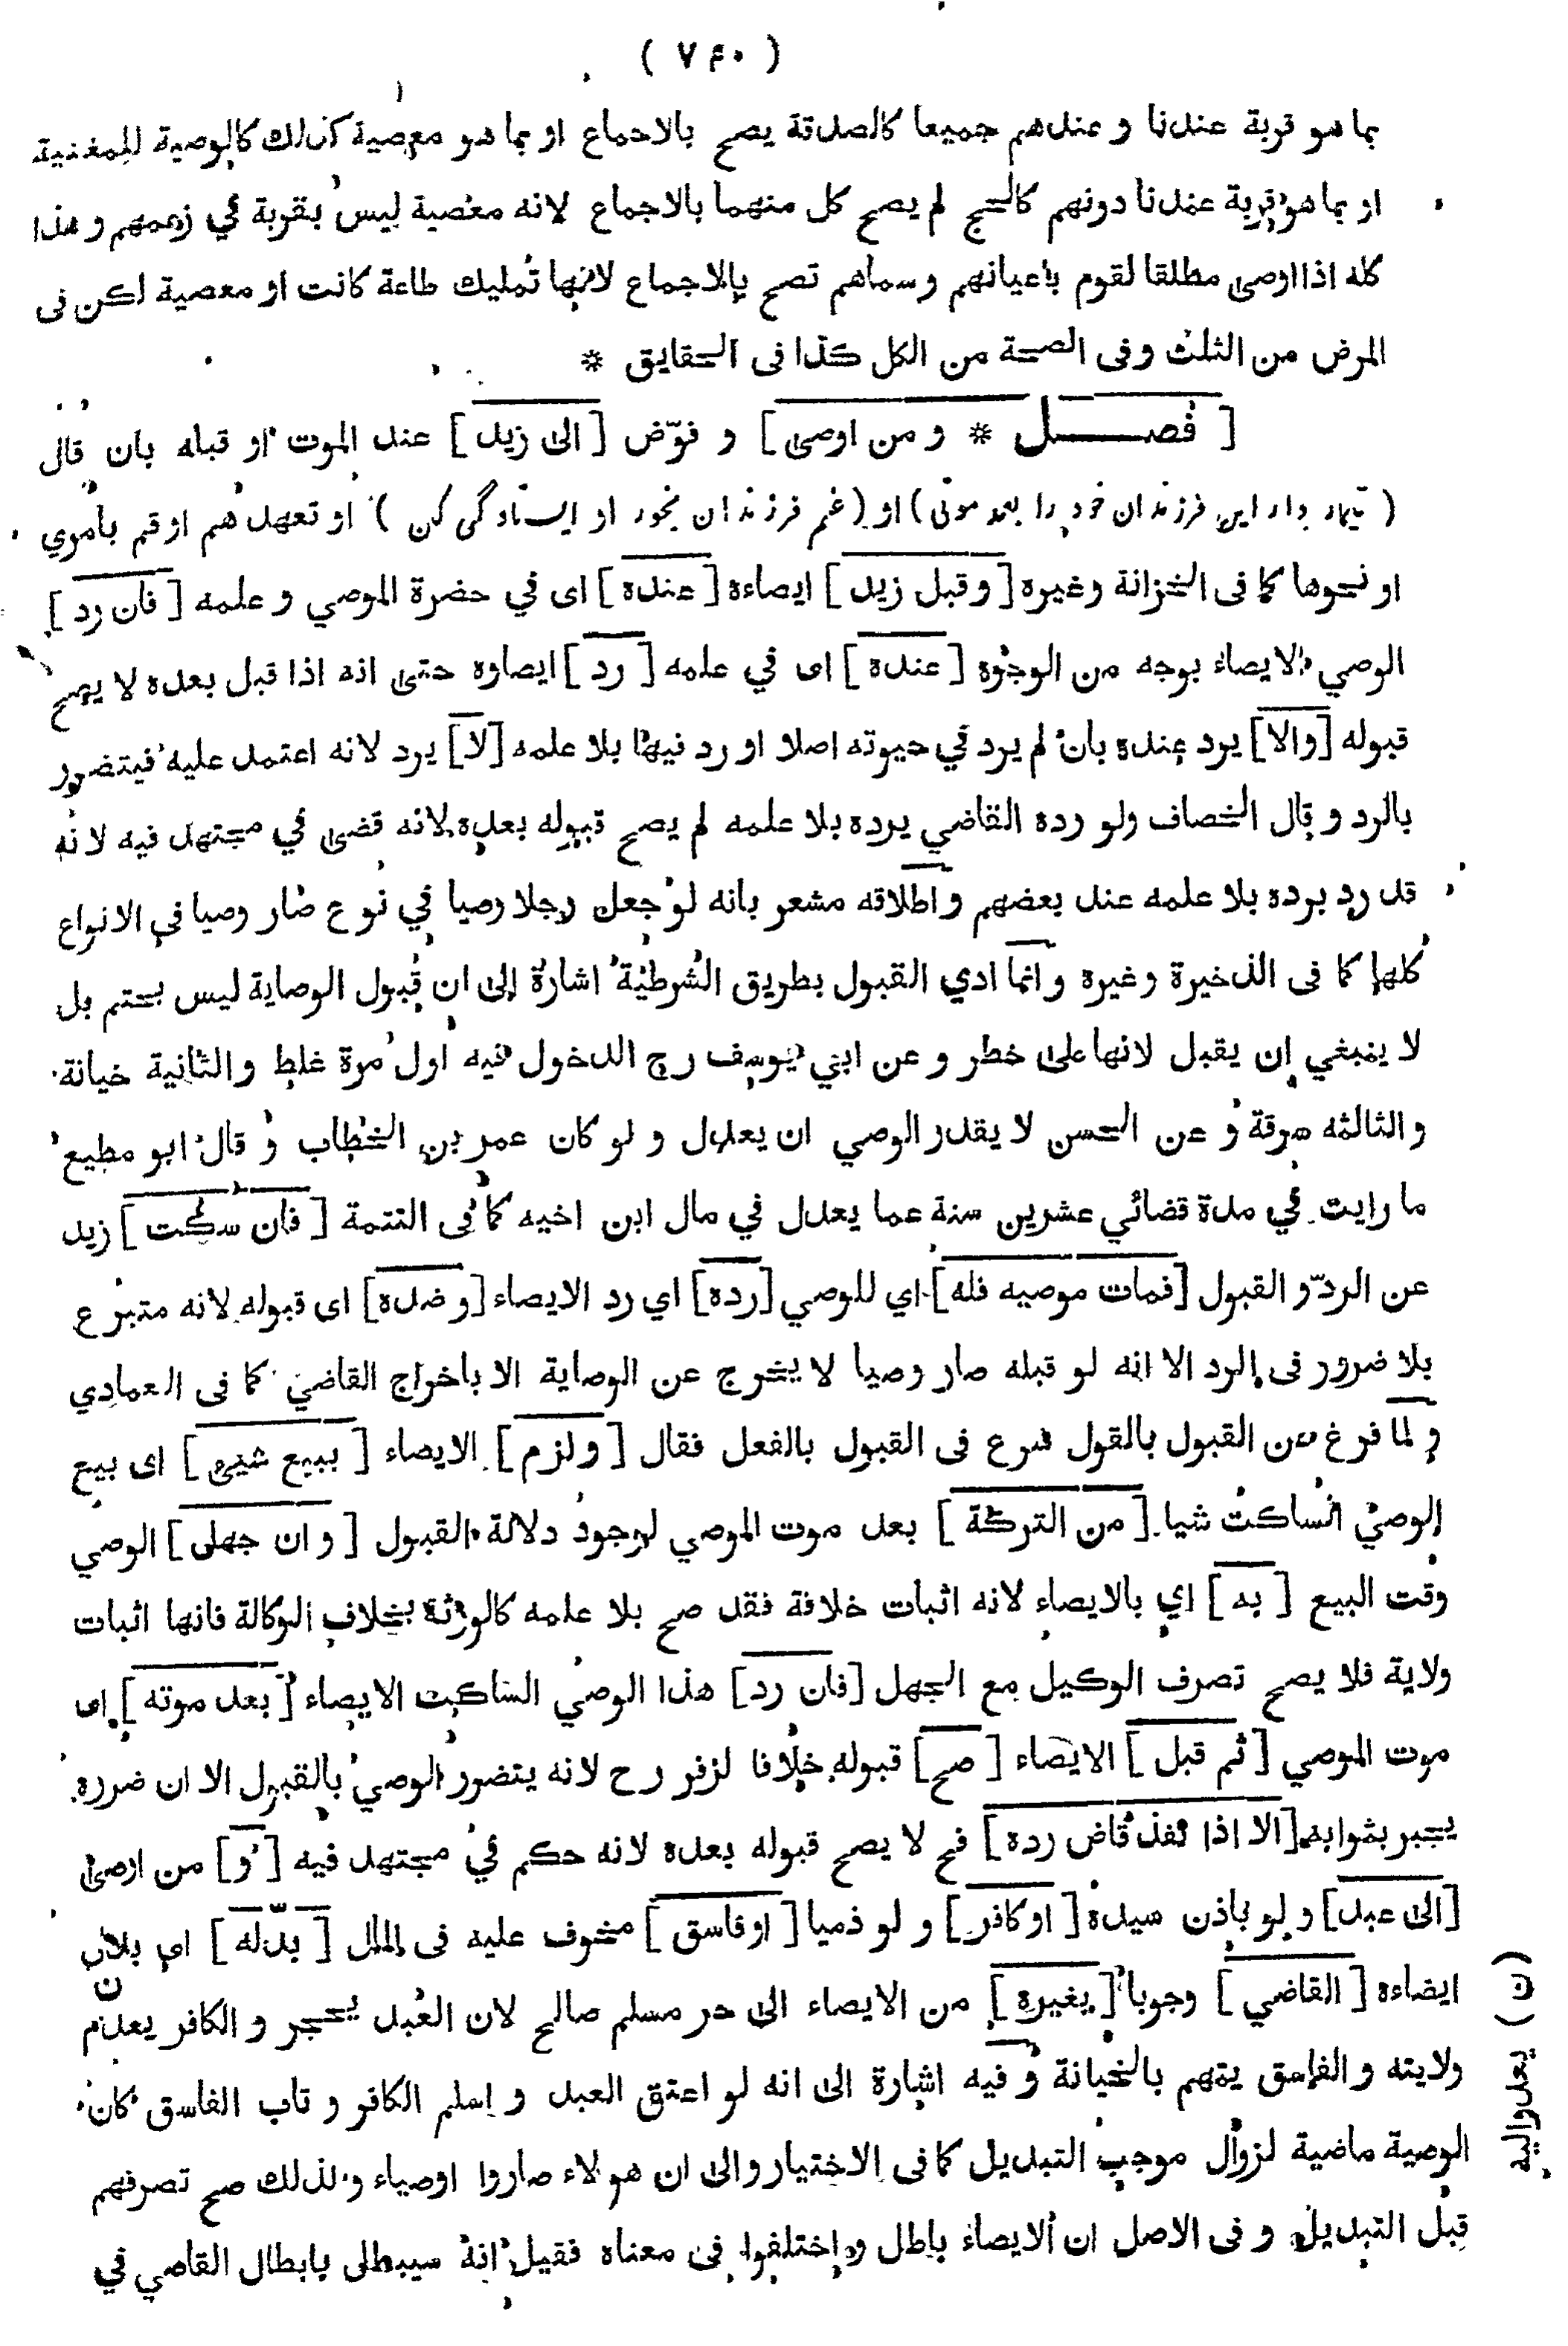 ( ٧٤٠ )
بما هو قربة عندنا و عندهم جميعا كالصدقة يصح بالاجماع او بما هو معصية كذلك كالوصية للمغنية
او بما هو قربة عندنا دونهم كالحج لم يصح كل منهما بالاجماع لانه معصية ليس بقربة في زعمهم و هذا
كله اذا اوصى مطلقا لقوم باعيانهم وسماهم تصح بالاجماع لانها تمليك طاعة كانت او معصية لكن فى
المرض من الثلث وفى الصحة من الكل كذا فى الحقايق *
[ فصـــل * و من اوصى ] و فوّض [ الى زيد ] عند الموت او قبله بان قال
( تيمار دار اين فرزندان خود را بعد موتى ) او ( غم فرزندان بخور او ايستادگى كن ) او تعهدهم او قم بامري
او نحوها كما فى الخزانة وغيره [ و قبل زيد ] ايصاءه [ عنده ] اى في حضرة الموصي و علمه [ فان رد ]
الوصي الايصاء بوجه من الوجوه [ عنده ] اى في علمه [ رد ] ايصاوه حتى انه اذا قبل بعده لا يصح
قبوله [ والا ] يرد عنده بان لم يرد في حيوته اصلا او رد فيها بلا علمه [ لا ] يرد لانه اعتمد عليه فيتضرر
بالرد و قال الخصاف ولو رده القاضي يرده بلا علمه لم يصح قبوله بعده لانه قضى في مجتهد فيه لانه
قد رد برده بلا علمه عند بعضهم و اطلاقه مشعر بانه لو جعل رجلا وصيا في نوع صار وصيا في الانواع
كلها كما فى الذخيرة وغيره و انما ادي القبول بطريق الشرطية اشارة الى ان قبول الوصاية ليس بحتم بل
لا ينبغي ان يقبل لانها على خطر و عن ابي يوسف رح الدخول فيه اول مرة غلط و الثانية خيانة
و الثالثه سرقة و عن الحسن لا يقدر الوصي ان يعدل و لو كان عمر بن الخطاب و قال ابو مطيع
ما رايت في مدة قضائي عشرين سنة عما يعدل في مال ابن اخيه كما فى التتمة [ فان سكت ] زيد
عن الردّ و القبول [ فمات موصيه فله ] اي للوصي [ رده ] اي رد الايصاء [ و ضده ] اى قبوله لانه متبرع
بلا ضرور فى الرد الا انه لو قبله صار وصيا لا يخرج عن الوصاية الا باخراج القاضي كما فى العمادي
و لما فرغ من القبول بالقول شرع فى القبول بالفعل فقال [ و لزم ] الايصاء [ ببيع شيئ ] اى بيع
الوصي الساكت شيا [ من التركة ] بعد موت الموصي لوجود دلالة القبول [ و ان جهل ] الوصي
وقت البيع [ به ] اي بالايصاء لانه اثبات خلافة فقد صح بلا علمه كالورثة بخلاف الوكالة فانها اثبات
ولاية فلا يصح تصرف الوكيل مع الجهل [ فان رد ] هذا الوصي الساكت الايصاء [ بعد موته ] اى
موت الموصي [ ثم قبل ] الايصاء [ صح ] قبوله خلافا لزفر رح لانه يتضرر الوصي بالقبول الا ان ضرره
يجبر بثوابه [ الا اذا نفذ قاض رده ] فح لا يصح قبوله بعده لانه حكم في مجتهد فيه [ و ] من اوصى
[ الى عبد ] و لو باذن سيده [ او كافر ] و لو ذميا [ او فاسق ] مخوف عليه فى المال [ بدّله ] اي بدل
ايصاءه [ القاضي ] وجوبا [ بغيره ] من الايصاء الى حر مسلم صالح لان العبد يحجر و الكافر يعدم ن
ولايته و الفاسق يتهم بالخيانة و فيه اشارة الى انه لو اعتق العبد و اسلم الكافر و تاب الفاسق كان
الوصية ماضية لزوال موجب التبديل كما فى الاختيار والى ان هولاء صاروا اوصياء و لذلك صح تصرفهم
قبل التبديل و فى الاصل ان الايصاء باطل و اختلفوا فى معناه فقيل انه سيبطل بابطال القاضي في
( ن ) يعد واليه